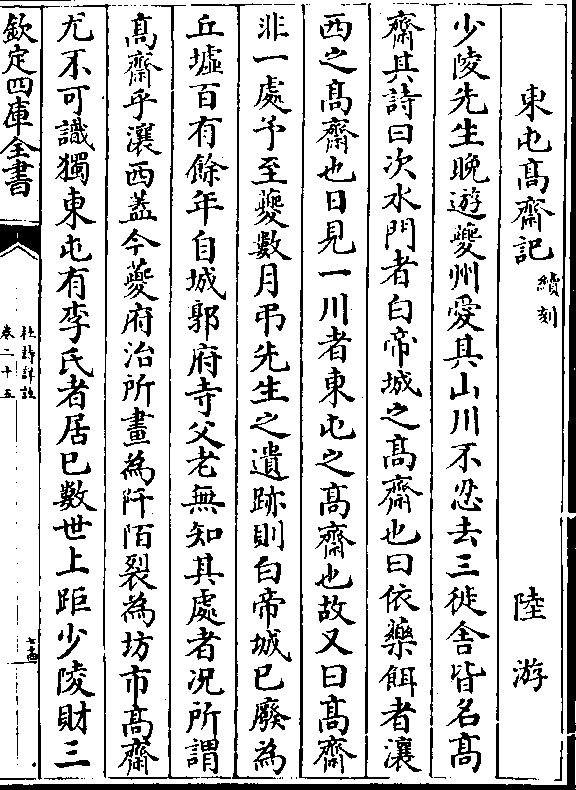 東屯髙齋記續刻 陸游
少陵先生晚遊夔州愛其山川不忍去三徙舍皆名髙
齋其詩曰次水門者白帝城之髙齋也曰依藥餌者瀼
西之髙齋也曰見一川者東屯之髙齋也故又曰髙齋
非一處予至夔數月弔先生之遺跡則白帝城已廢為
丘墟百有餘年自城郭府寺父老無知其處者况所謂
髙齋乎瀼西葢今夔府治所畫為阡陌裂為坊市髙齋
尤不可識獨東屯有李氏者居已數世上距少陵財三
欽定四庫全書
杜詩詳註
卷二十五